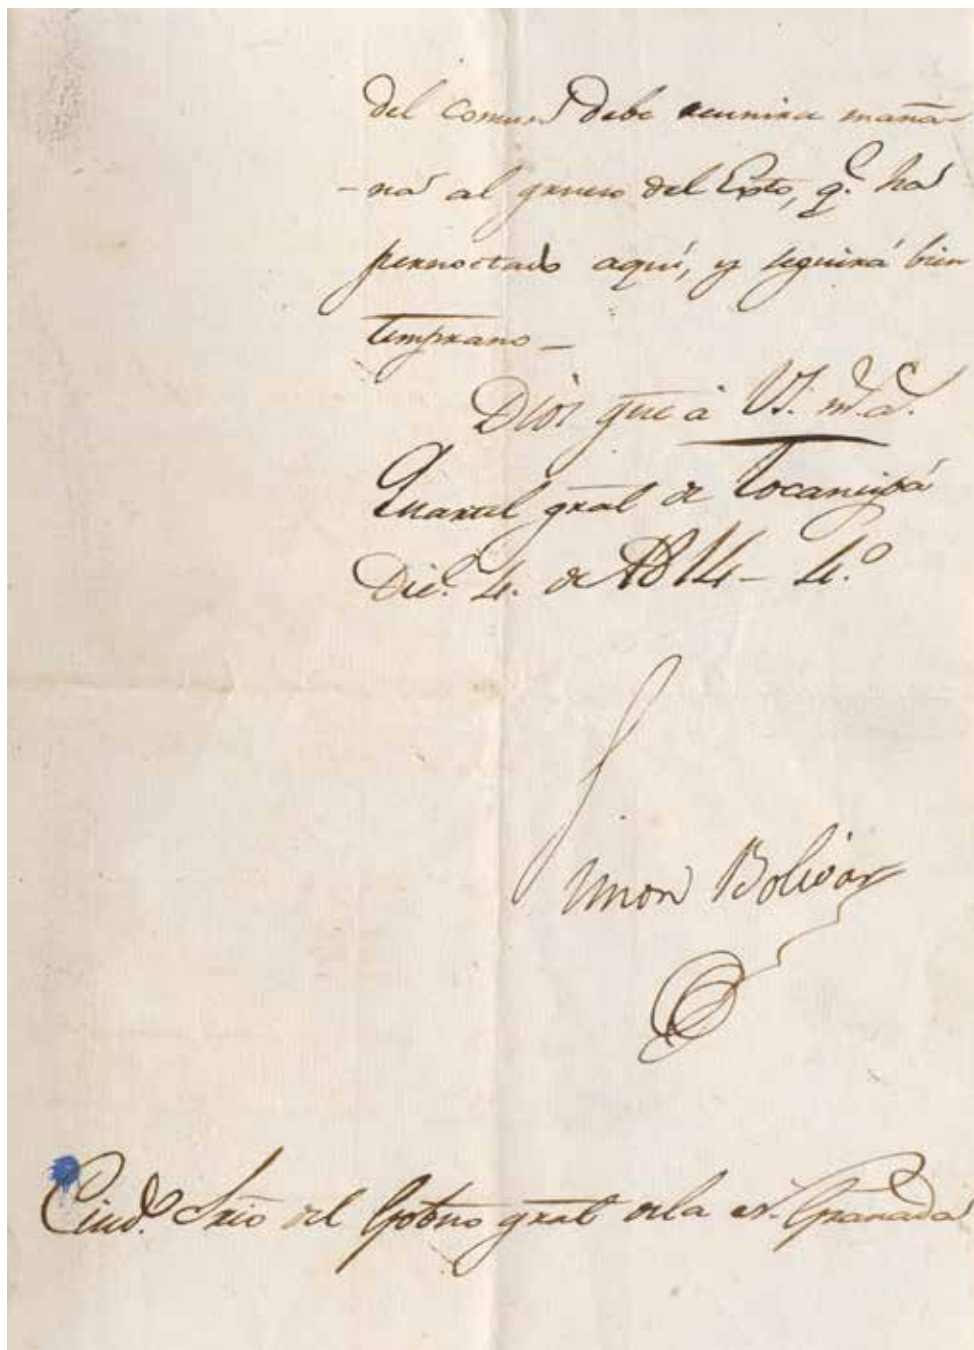 del Comun debe reunirse maña-
-na al grueso del Exto, q.e ha
pernoctado aquí, y seguirá bien
temprano_
Dios gue à VS. m.s a.s
Quartel gral de Tocancipá
Dic.e 4. de 1814_ 4.º
Simon Bolivar
Ciud.º Srio del Gobno gral de la N. Granada